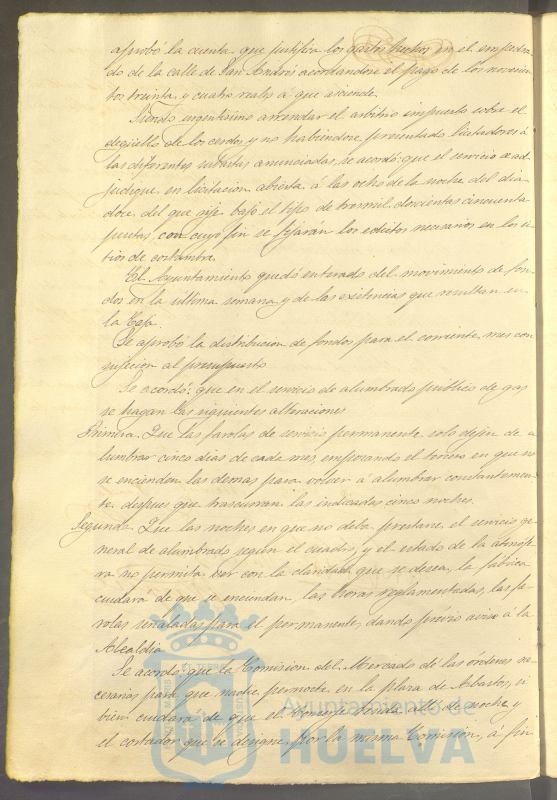 aprobó la cuenta que justifica los gastos hechos en el empedra-
do de la calle de San Andrés acordandose el pago de los novecien-
tos treinta y cuatro reales á que asciende.
Siendo urgentisimo arrendar el arbitrio impuesto sobre el
degüello de los cerdos y no habiendose presentado licitadores á
las diferentes subastas anunciadas, se acordó: que el servicio se ad-
judique, en licitacion abierta á las ocho de la noche del dia
doce, del que rije bajo el tipo de tres mil doscientas cincuenta
pesetas, con cuyo fin se fijarán los edictos necesarios en los si-
tios de costumbre.
El Ayuntamiento quedó enterado del movimiento de fon-
dos en la ultima semana y de las existencias que resultan en
la Caja.
Se aprobó la distribucion de fondos para el corriente mes con
sujecion al presupuesto
Se acordó: que en el servicio de alumbrado publico de gas
se hagan las siguientes alteraciones
Primera. Que las farolas de servicio permanente solo dejen de a-
lumbrar cinco dias de cada mes, empezando el tercero en que no
se enciendan las demas para volver á alumbrar constantemen-
te despues que trascurran las indicadas cinco noches.
Segunda. Que las noches en que no deba prestarse el servicio ge-
neral de alumbrado segun el cuadro, y el estado de la atmosfe-
ra no permita ver con la claridad que se desea, la fabrica
cuidará de que se enciendan, las horas reglamentadas, las fa-
rolas señaladas para el permanente, dando prévio aviso á la
Alcaldia
Se acordó: que la Comision del Mercado de las órdenes ne-
cesarias para que nadie pernocte en la plaza de Abastos, si
bien cuidará de que el Conserje ronde alli de noche y
el cortador que se designe por la misma Comision, a fin
Ayuntamiento de
HUELVA